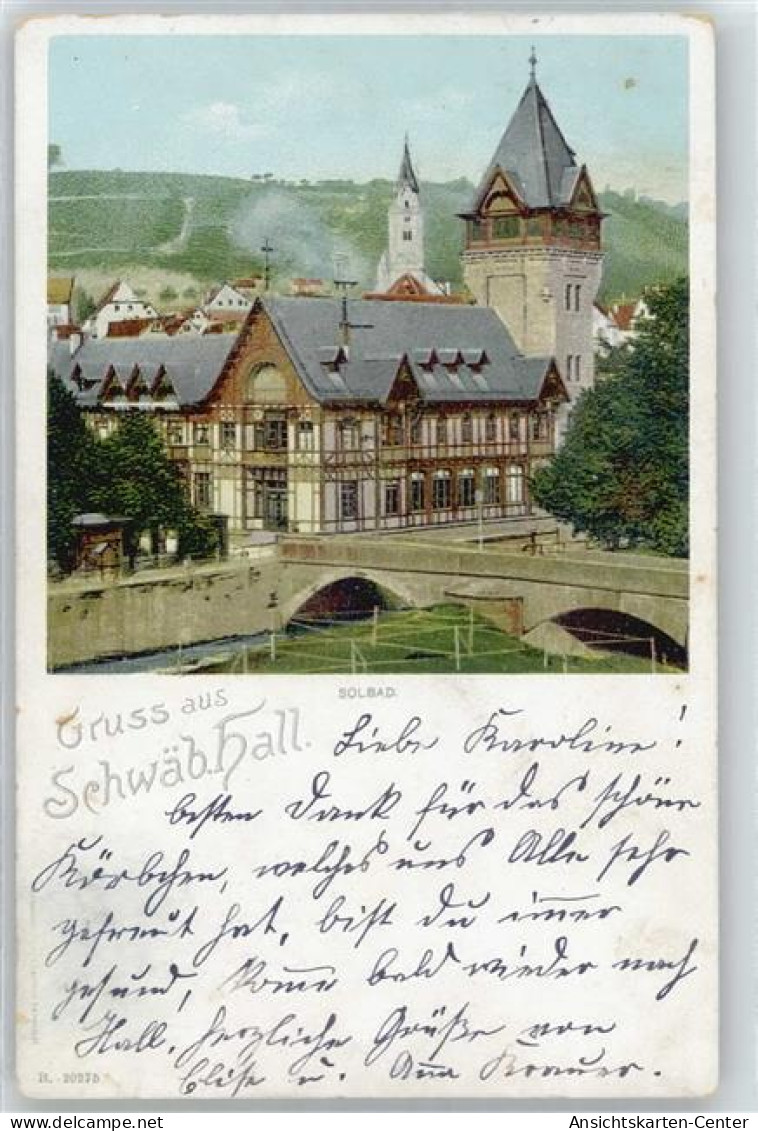 SOLBAD.
Gruss aus
Schwäb. Hall.
Liebe Karoline!
besten Dank für das schöne
Körbchen, welches uns Alle sehr
gefreut hat, bist du im̅er
gesund, kom̅e bald wieder nach
Hall, herzliche Grüße von
Elise u.
B. 2027b
Ansichtskarten-Center